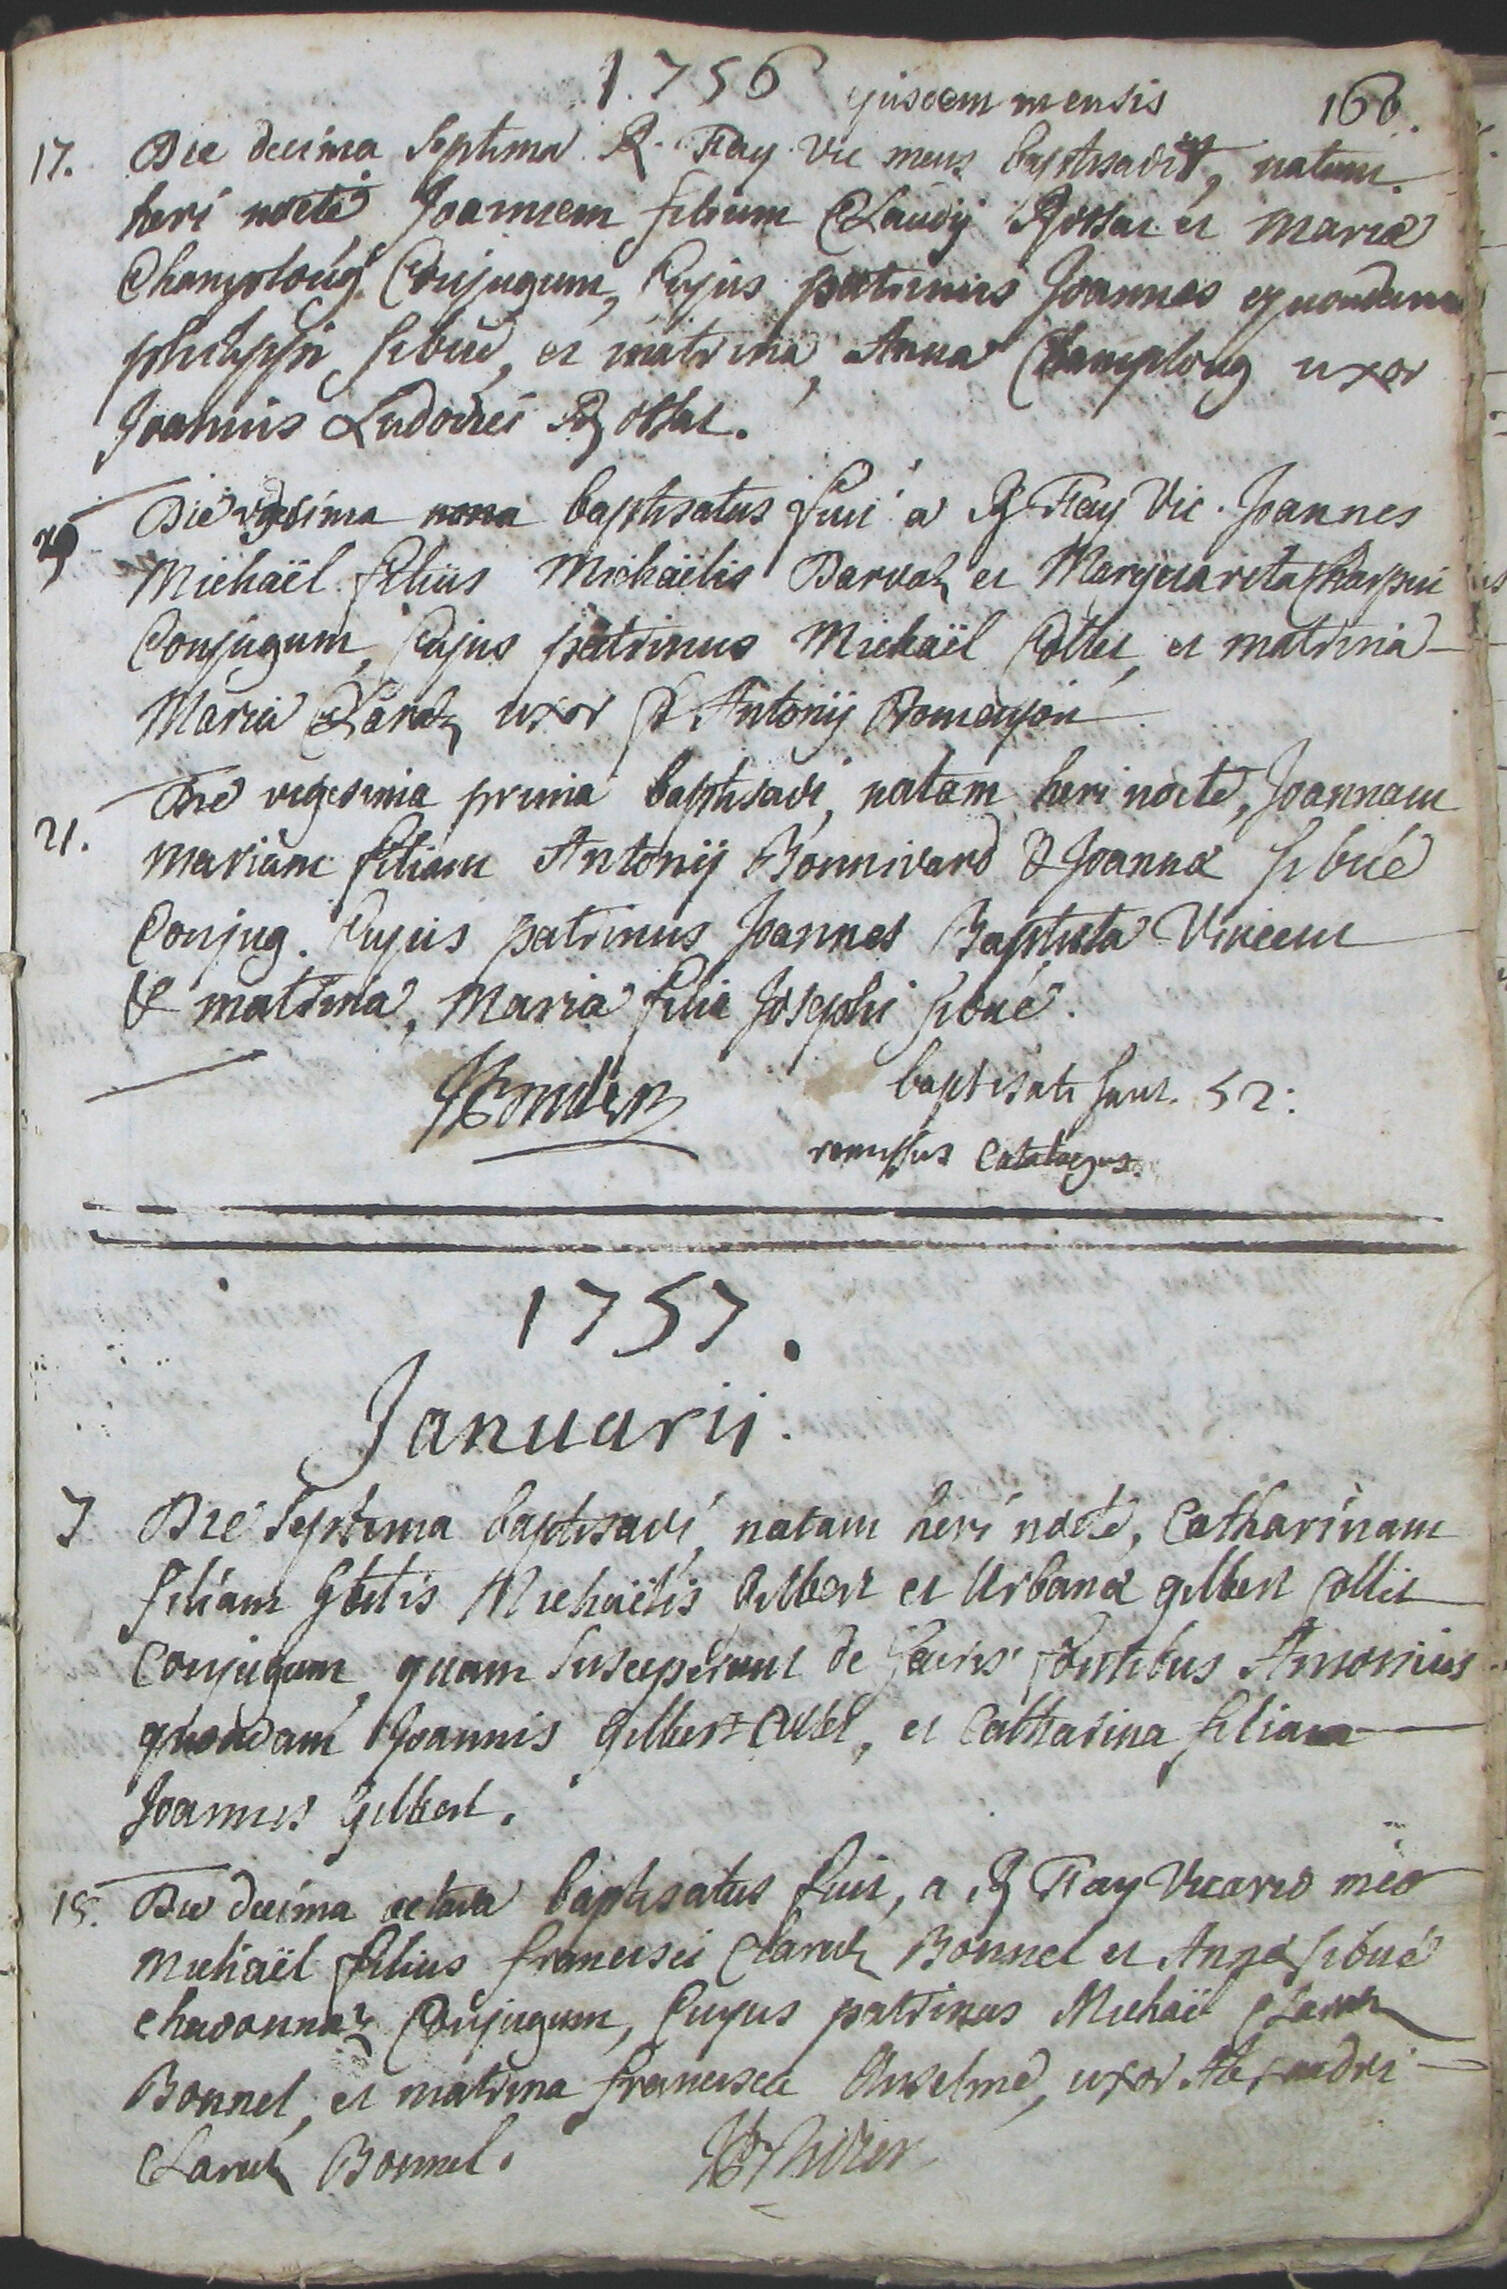 1756 ejusdem mensis 166.
17. Die decima septima R. Fay vic meus baptisavit, natum
heri nocte Joannem filium Claudij Rossat et Maria
Champloug Conjugum, Cujus patrinus Joannes quondam
philippi sibué, et matrina, Anna Champloug uxor
Joannis Ludovici Rossat.
19 Die vigesima nona baptisatus fuit a R. Fay Vic. Joannes
Michaël filius Michaëlis Darvaz et Margarita
Conjugum, Cujus patrinus Michaël Collet, et matrina
Maria Claraz uxor Antonij
21. Die vigesima prima baptisavi, natam heri nocte, Joannam
mariam filiam Antonij Bonnivard & Joanna sibué
Conjug. Cujus patrinus Joannes Baptista Vincent
& matrina, Maria filia Josephi sibué.
baptisati sunt. 52.
remissus Catalogus.
1757.
Januarii.
7 Die septima baptisavi, natam heri nocte, Catharinam
filiam Michaëlis Gilbert et Urbana gilbert Collet
Conjugum, quam susceperunt de sacris fontibus Antonius
quondam Joannis gilbert Collet, et Catharina filiam
Joannis gilbert.
18. Die decima octava baptisatus fuit, a R. Fay Vicario meo
Michaël filius francisci Claraz Bonnel et Anna sibué
chadonnaz Conjugum, Cujus patrinus Michaël Claraz
Bonnel, et matrina francisca Anselme, uxor Alexandri
Claraz Bonnel.